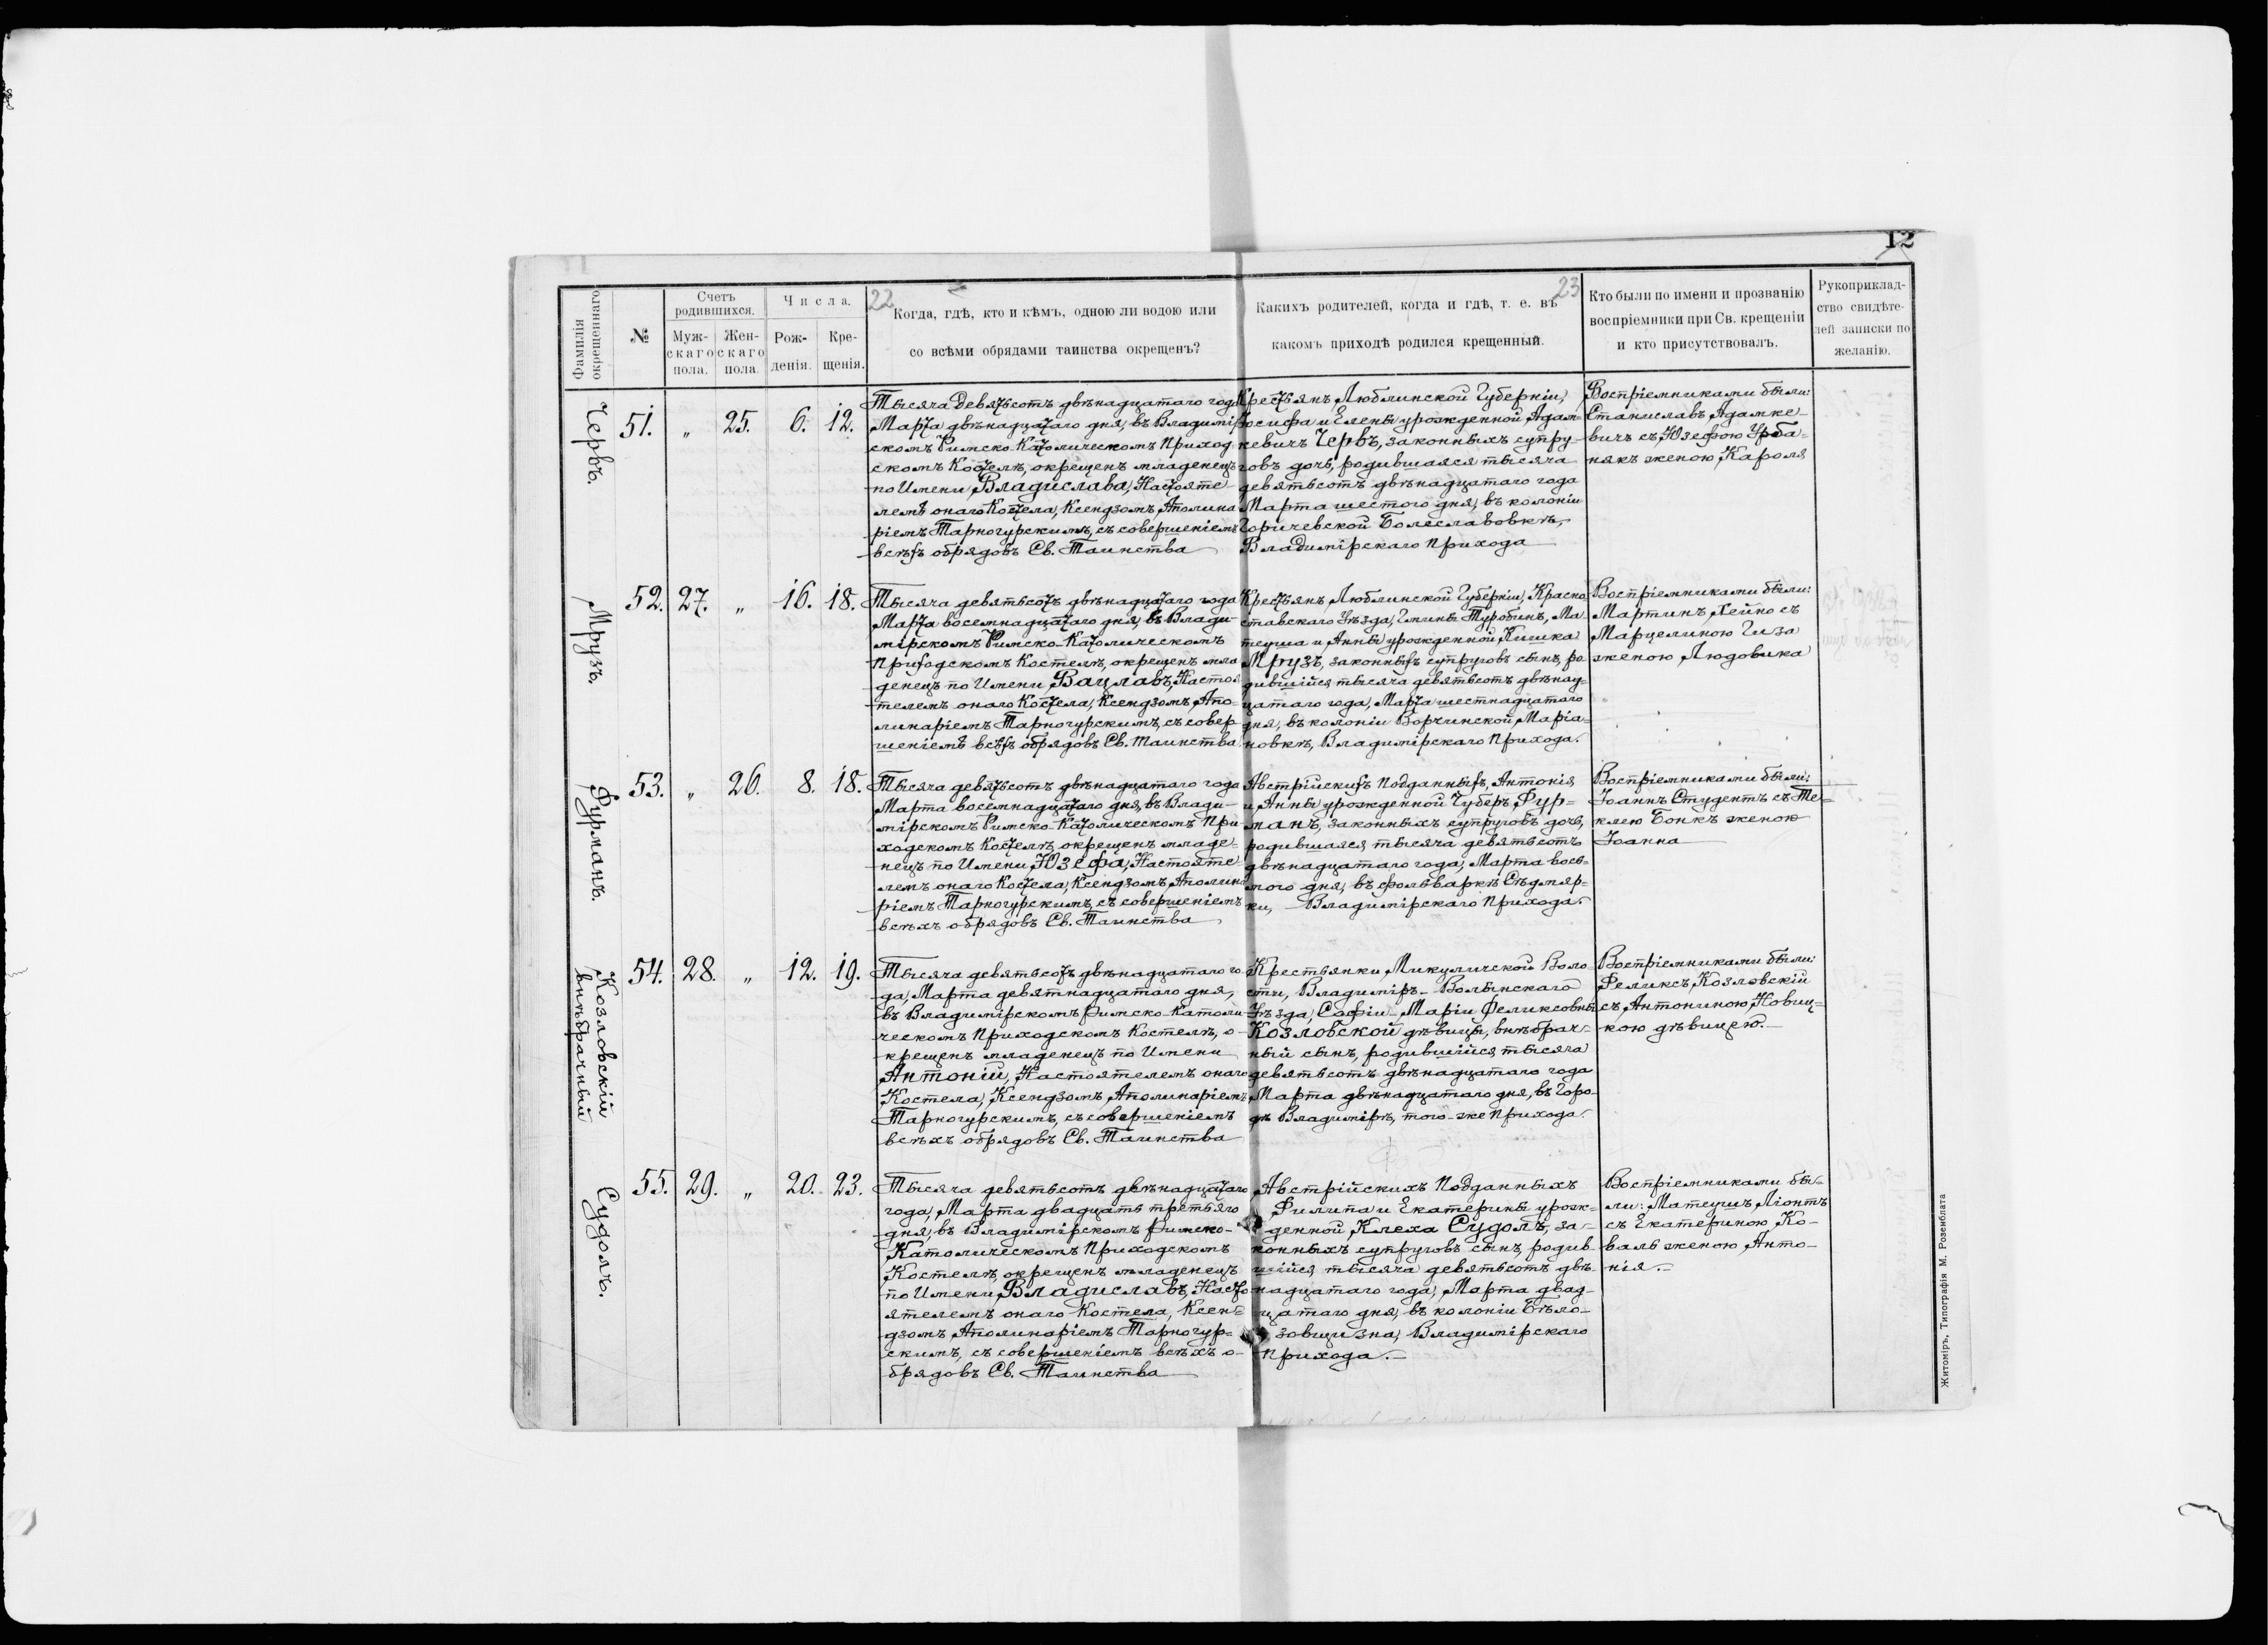 12
22
23
Фамилія окрещеннаго.
№
Счетъ родившихся.
Муж-
скаго
пола.
Жен-
скаго
пола.
Числа.
Рож-
денія.
Кре-
щенія.
Когда, гдѣ, кто и кѣмъ, одною ли водою или
со всѣми обрядами таинства окрещенъ?
Какихъ родителей, когда и гдѣ, т. е. въ
какомъ приходѣ родился крещенный.
Кто были по имени и прозванію
воспріемники при Св. крещеніи
и кто присутствовалъ.
Рукоприклад-
ство свидѣте-
лей записки по
желанію.
Червъ.
51. „ 25. 6. 12.
Тысяча девятьсотъ двѣнадцатаго года
Марта двѣнадцатаго дня, въ Владимір
скомъ Римско-Католическомъ Приход
скомъ Костелѣ, окрещенъ младенецъ
по Имени Владислава, Настояте
лемъ онаго Костела, Ксендзомъ Аполина
ріемъ Тарногурскимъ, съ совершеніемъ
всѣхъ обрядовъ Св. Таинства
Крестьянъ Люблинской Губерніи,
Іосифа и Елены урожденной Адам-
кевичъ Червъ, законныхъ супру-
говъ дочь, родившаяся тысяча
девятьсотъ двѣнадцатаго года
Марта шестого дня, въ колоніи
Горичевской Болеславовкѣ,
Владимірскаго Прихода
Воспріемниками были:
Станиславъ Адамке-
вичъ съ Юзефою Урба-
някъ женою Кароля
Мрузъ.
52. 27. „ 16. 18.
Тысяча девятьсотъ двѣнадцатаго года
Марта восемнадцатаго дня, въ Влади-
мірскомъ Римско-Католическомъ
Приходскомъ Костелѣ, окрещенъ мла
денецъ по Имени Вацлавъ, Настоя
телемъ онаго Костела, Ксендзомъ Апо-
линаріемъ Тарногурскимъ, съ совер-
шеніемъ всѣхъ обрядовъ Св. Таинства.
Крестьянъ Люблинской Губерніи, Красно
ставскаго Уѣзда, Гмины Туробинъ, Ма-
теуша и Анны урожденной Кишка
Мрузъ, законныхъ супруговъ сынъ, ро-
дившійся тысяча девятьсотъ двѣнад-
цатаго года, Марта шестнадцатаго
дня, въ колоніи Ворчинской Маріа-
новкѣ, Владимірскаго Прихода.
Воспріемниками были:
Мартинъ Хейно съ
Марцелиною Гиза
женою Людовика
Фурманъ.
53. „ 26. 8. 18.
Тысяча девятьсотъ двѣнадцатаго года
Марта восемнадцатаго дня, въ Влади-
мірскомъ Римско-Католическомъ При
ходскомъ Костелѣ, окрещенъ младе-
нецъ по Имени Юзефа, Настояте
лемъ онаго Костела, Ксендзомъ Аполина
ріемъ Тарногурскимъ, съ совершеніемъ
всѣхъ обрядовъ Св. Таинства
Австрійскихъ Подданныхъ, Антонія
и Анны урожденной Губеръ Фур-
манъ, законныхъ супруговъ дочь,
родившаяся тысяча девятьсотъ
двѣнадцатаго года, Марта вось-
мого дня, въ фольваркѣ Сѣдмяр-
ки, Владимірскаго Прихода.
Воспріемниками были:
Іоаннъ Студентъ съ Те-
клею Бонкъ женою
Іоанна
Козловскій
внѣбрачный
54. 28. „ 12. 19.
Тысяча девятьсотъ двѣнадцатаго го-
да, Марта девятнадцатаго дня,
въ Владимірскомъ Римско-Католи
ческомъ Приходскомъ Костелѣ, о-
крещенъ младенецъ по Имени
Антоній, Настоятелемъ онаго
Костела, Ксендзомъ Аполинаріемъ
Тарногурскимъ, съ совершеніемъ
всѣхъ обрядовъ Св. Таинства
Крестьянки Микуличской Воло-
сти, Владиміръ-Волынскаго
Уѣзда, Софіи-Маріи Феликсовны
Козловской дѣвицы, внѣбрач-
ный сынъ, родившійся тысяча
девятьсотъ двѣнадцатаго года
Марта двѣнадцатаго дня, въ горо-
дѣ Владимірѣ, того-же Прихода.
Воспріемниками были:
Феликсъ Козловскій
съ Антониною Новиц-
кою дѣвицею.
Судолъ.
55. 29. „ 20. 23.
Тысяча девятьсотъ двѣнадцатаго
года, Марта двадцать третьяго
дня, въ Владимірскомъ Римско-
Католическомъ Приходскомъ
Костелѣ, окрещенъ младенецъ
по Имени Владиславъ, Насто
ятелемъ онаго Костела, Ксен-
дзомъ Аполинаріемъ Тарногур-
скимъ, съ совершеніемъ всѣхъ о-
брядовъ Св. Таинства
Австрійскихъ Подданныхъ
Филипа и Екатерины урож-
денной Клеха Судолъ, за-
конныхъ супруговъ сынъ, родив-
шійся тысяча девятьсотъ двѣ
надцатаго года, Марта двад-
цатаго дня, въ колоніи Бѣло-
зовщизна, Владимірскаго
Прихода.
Воспріемниками бы-
ли: Матеушъ Ліонтъ
съ Екатериною Ко-
валь женою Анто-
нія.
Житоміръ, Типографія М. Розенблата